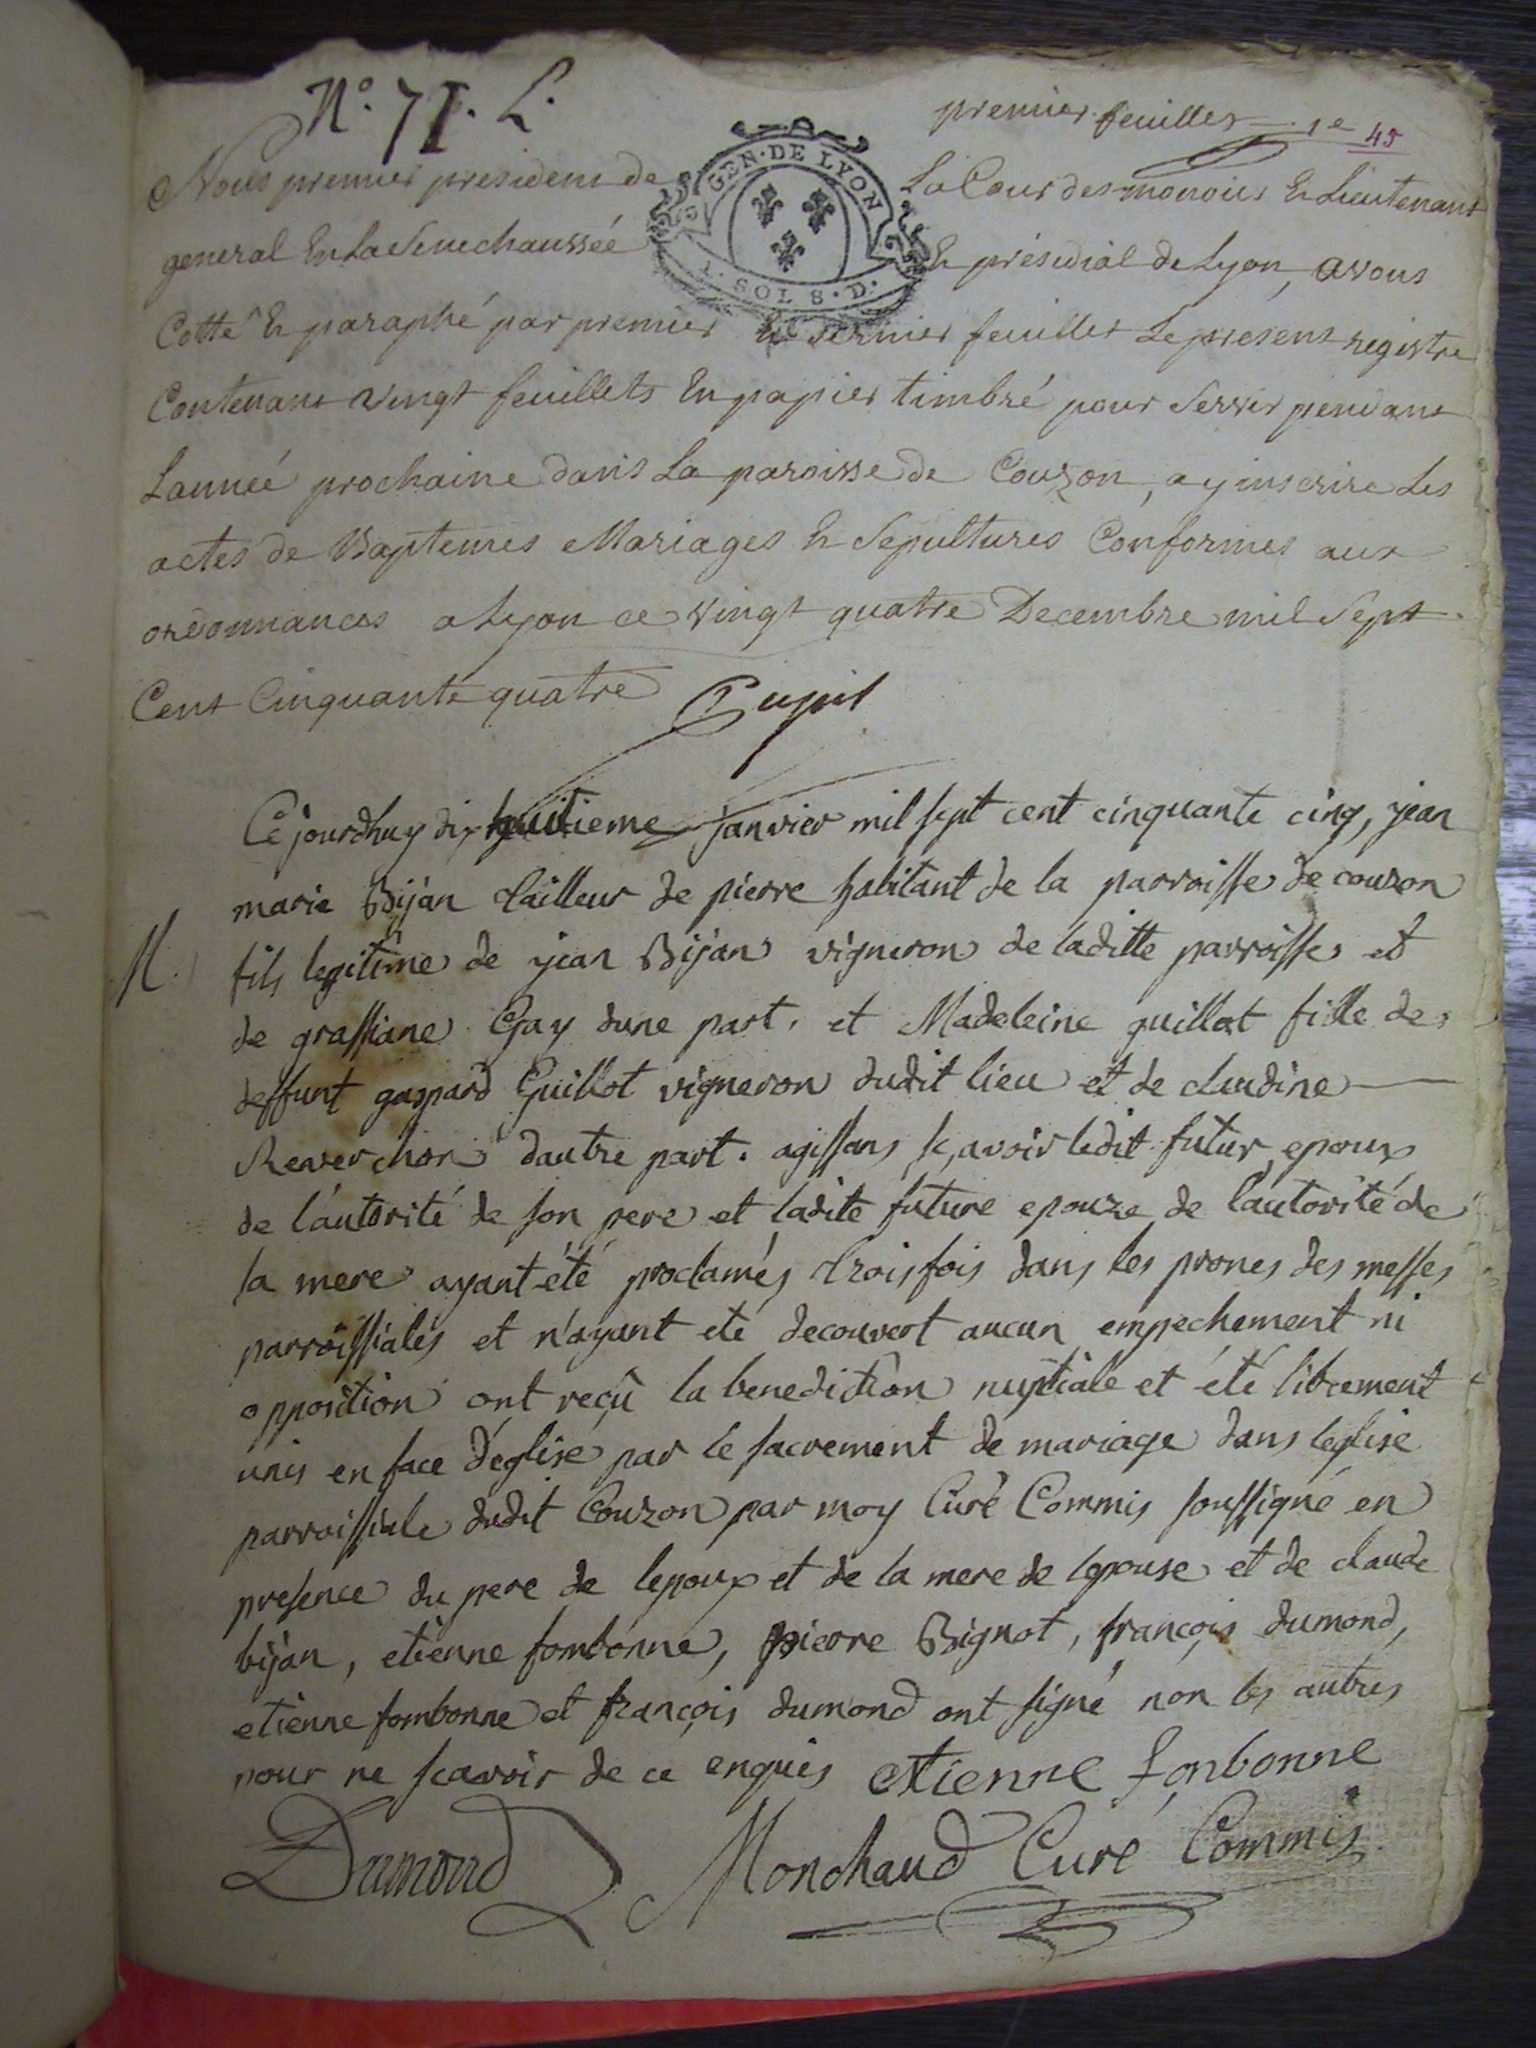 N.° 71. L.
premier feuillet 1e 45
GEN. DE LYON
1. SOL 8. D.
Nous premier president de La Cour des monoies et Lieutenant
general En La Senechaussée Et présidial de Lyon, avons
Cotté Et paraphé par premier Et dernier feuillet Le present registre
Contenant vingt feuillets En papier timbré pour Servir pendant
Lannée prochaine dans La paroisse de Couzon, a y inscrire Les
actes de Baptemes Mariages Et Sepultures Conformes aux
ordonnances a Lyon ce vingt quatre Decembre mil Sept
Cent Cinquante quatre Pupil
Ce jourdhuy dix huitieme janvier mil sept cent cinquante cinq, jean
marie Bijan tailleur de pierre habitant de la parroisse de couzon
M.
fils legitime de jean Bijan vigneron de laditte parroisse et
de grassiane Gay dune part, et Madeleine guillot fille de
deffunt gaspard Guillot vigneron dudit lieu et de claudine
Reverchon dautre part. agissans sçavoir ledit futur epoux
de l'autorité de son pere et ladite future epouze de l'autorité de
sa mere ayant été proclamés trois fois dans les prones des messes
parroissiales et n'ayant eté decouvert aucun empechement ni
opposition ont reçu la benediction nuptiale et été librement
unis en face d'eglise par le sacrement de mariage dans leglise
parroissiale dudit Couzon par moy Curé Commis soussigné en
presence du pere de lepoux et de la mere de lepouse et de claude
bijan, etienne fombonne, pierre Bignot, françois dumond,
etienne fombonne et françois dumond ont signé non les autres
pour ne scavoir de ce enquis etienne fonbonne
Dumond Monchaud Curé Commis